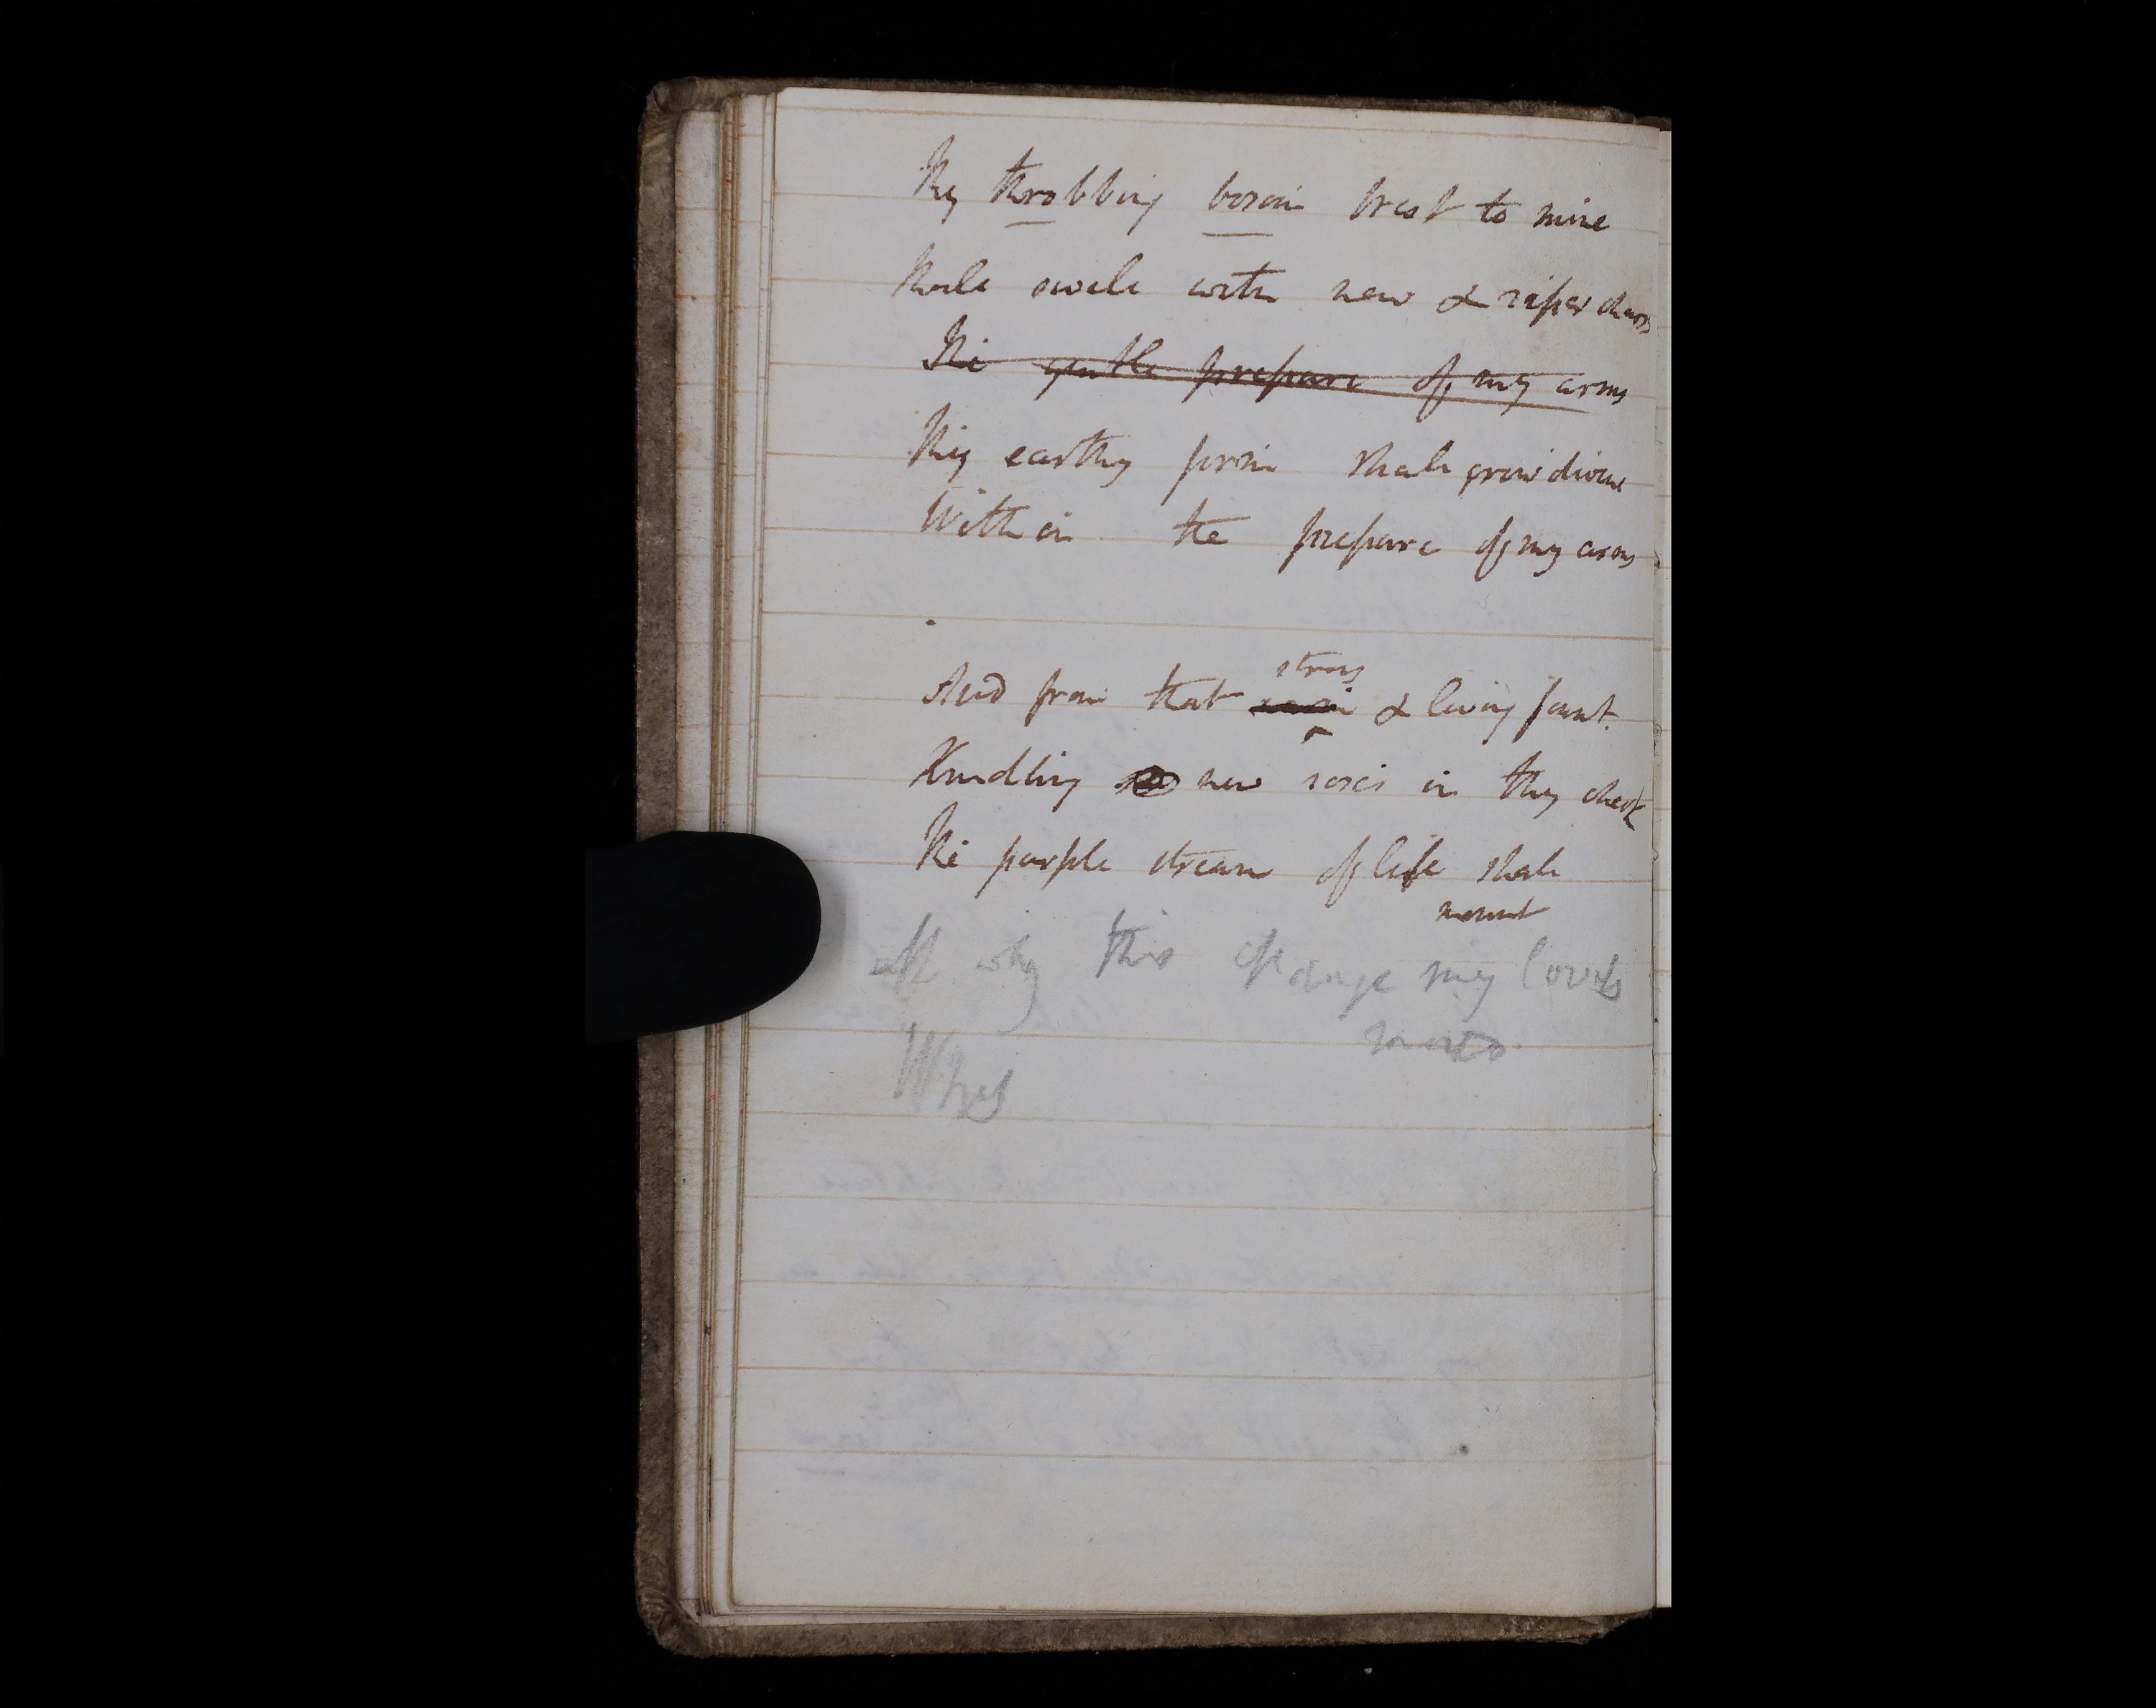 Thy throbbing bosom prest to mine
Shall swell with new & riper charms
The gentle pressure of my arms
Thy earthy form shall grow divine
Within the pressure of my arms
strong
And from that warm & living fount.
Kindling new roses in thy cheek
The purple stream of life shall
mount
Ah why this change my love's
Why